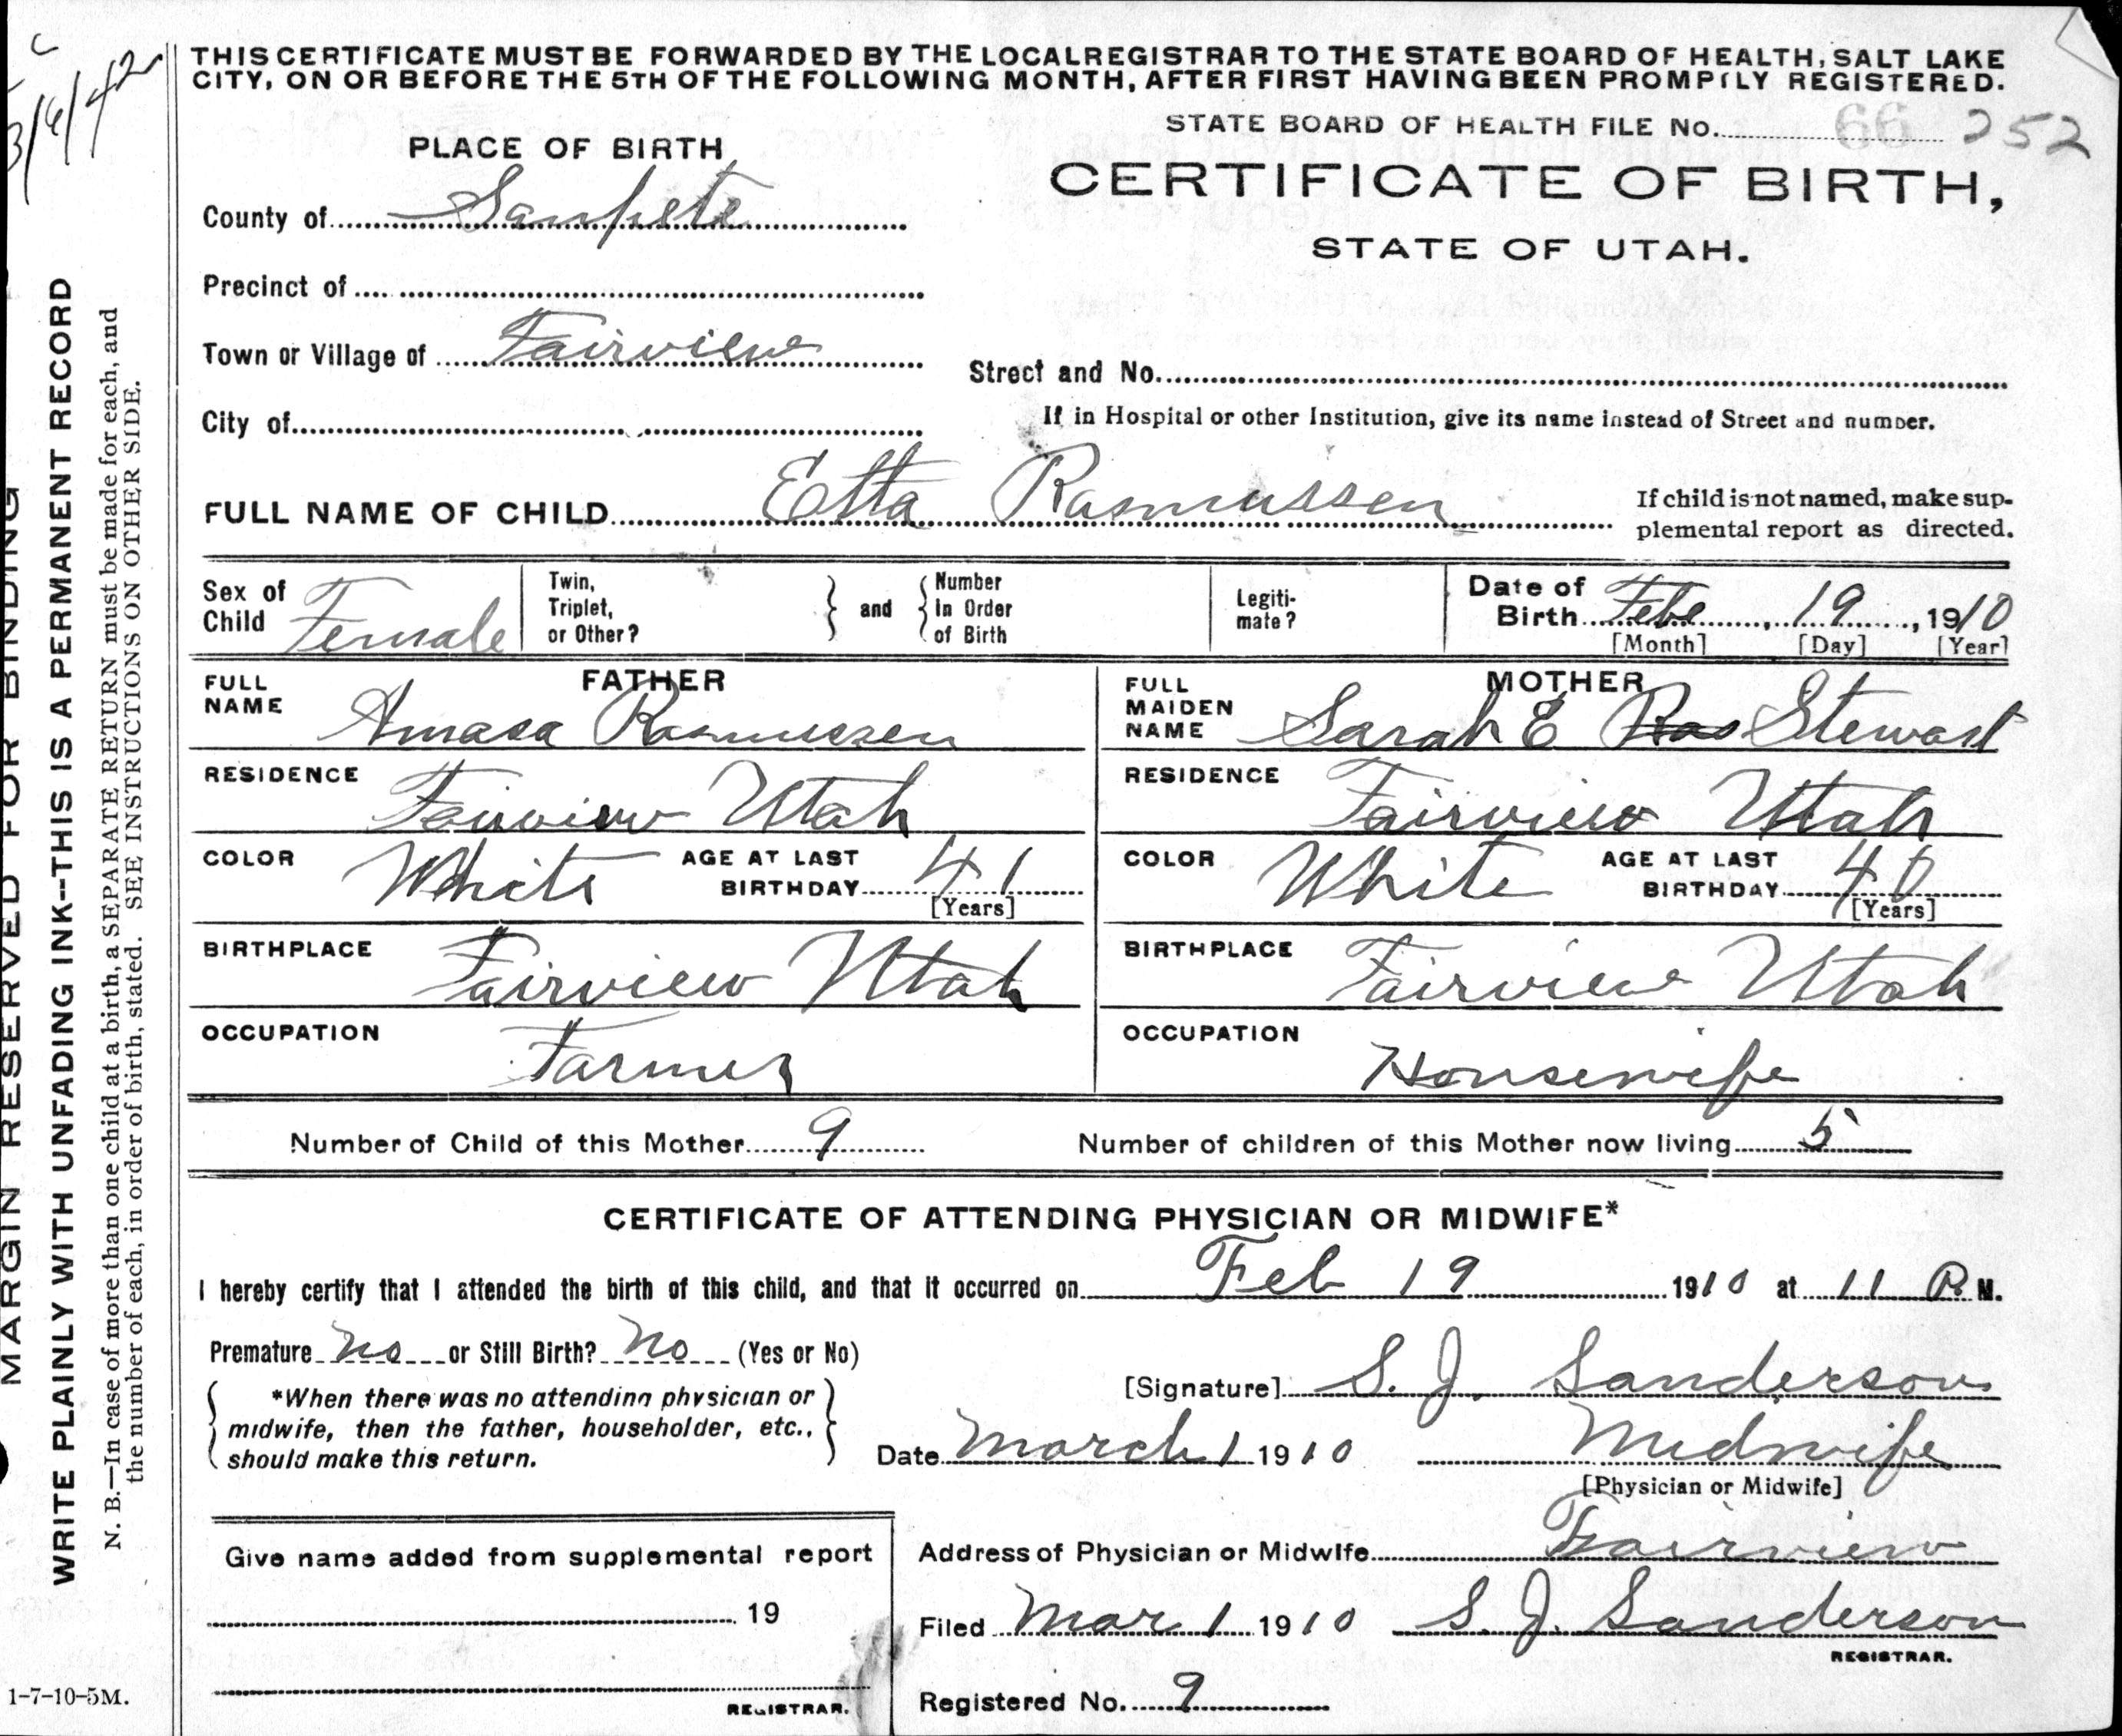 3/6/42
THIS CERTIFICATE MUST BE FORWARDED BY THE LOCAL REGISTRAR TO THE STATE BOARD OF HEALTH, SALT LAKE
CITY, ON OR BEFORE THE 5TH OF THE FOLLOWING MONTH, AFTER FIRST HAVING BEEN PROMPTLY REGISTERED.
STATE BOARD OF HEALTH FILE No. 66 252
PLACE OF BIRTH
CERTIFICATE OF BIRTH,
STATE OF UTAH.
County of Sanpete
Precinct of
Town or Village of Fairview
Street and No.
City of
If in Hospital or other Institution, give its name instead of Street and number.
FULL NAME OF CHILD Etta Rasmussen
If child is not named, make sup-
plemental report as directed.
Sex of Child Female
Twin, Triplet, or Other?
and
Number In Order of Birth
Legiti-
mate?
Date of Birth Febe 19, 1910
[Month] [Day] [Year]
FATHER
FULL NAME Amasa Rasmussen
RESIDENCE Fairview Utah
COLOR White AGE AT LAST BIRTHDAY 41
[Years]
BIRTHPLACE Fairview Utah
OCCUPATION Farmer
MOTHER
FULL MAIDEN NAME Sarah E Ras Stewart
RESIDENCE Fairview Utah
COLOR White AGE AT LAST BIRTHDAY 40
[Years]
BIRTHPLACE Fairview Utah
OCCUPATION Housewife
Number of Child of this Mother 9 Number of children of this Mother now living 5
CERTIFICATE OF ATTENDING PHYSICIAN OR MIDWIFE*
I hereby certify that I attended the birth of this child, and that it occurred on Feb 19 1910 at 11 P. M.
Premature no or Still Birth? no (Yes or No)
*When there was no attending physician or
midwife, then the father, householder, etc.,
should make this return.
[Signature] S. J. Sanderson
Date March 1 1910 Midwife
[Physician or Midwife]
Give name added from supplemental report
19
REGISTRAR.
Address of Physician or Midwife Fairview
Filed Mar 1 1910 S. J. Sanderson
REGISTRAR.
Registered No. 9
MARGIN RESERVED FOR BINDING
WRITE PLAINLY WITH UNFADING INK--THIS IS A PERMANENT RECORD
N. B.—In case of more than one child at a birth, a SEPARATE RETURN must be made for each, and
the number of each, in order of birth, stated. SEE INSTRUCTIONS ON OTHER SIDE.
1-7-10-5M.